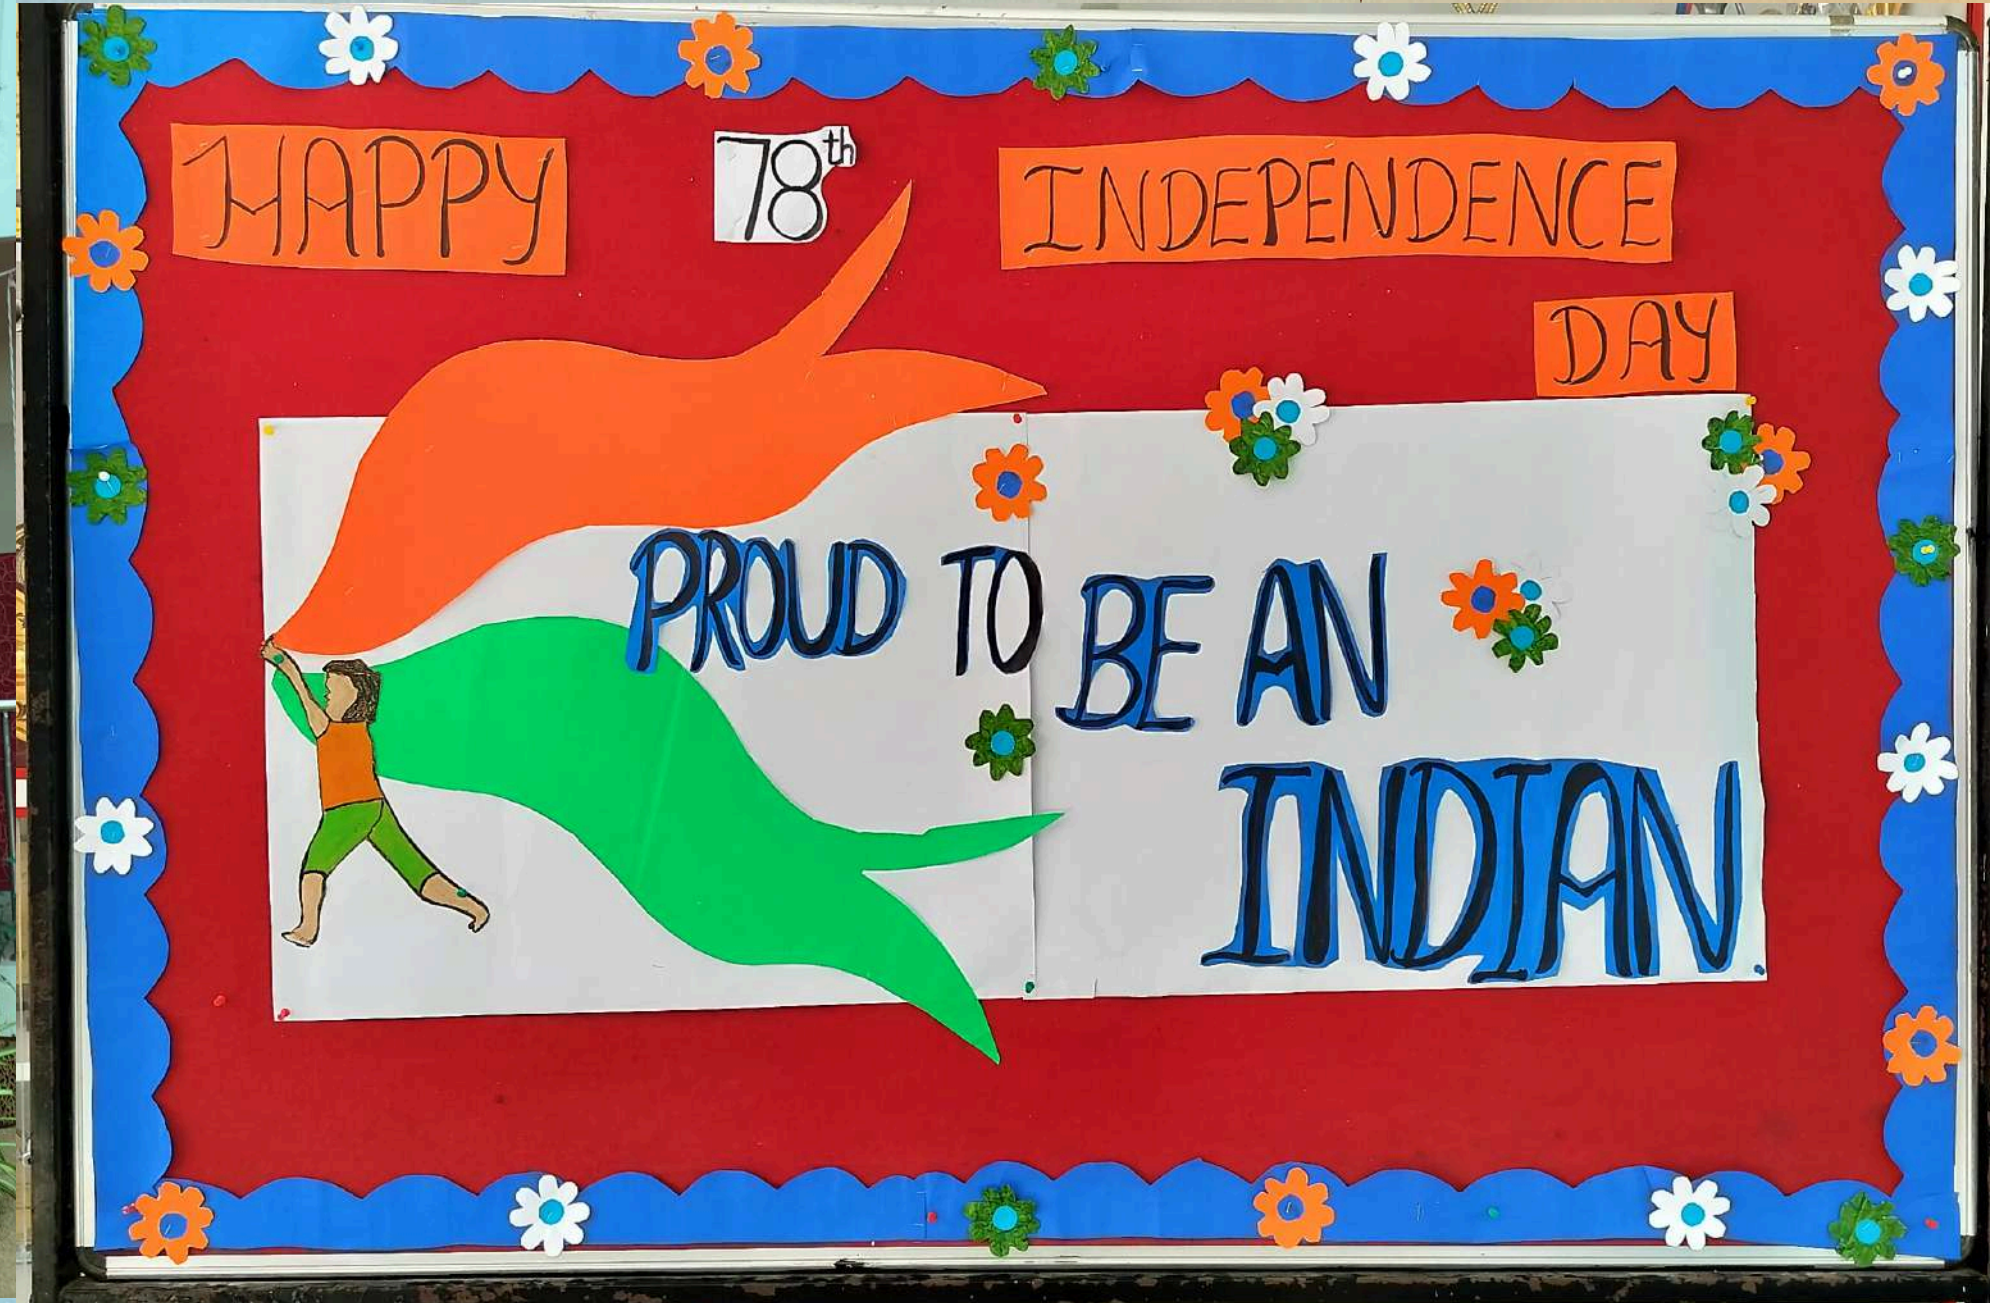 HAPPY 78th INDEPENDENCE
DAY
PROUD TO BE AN
INDIAN